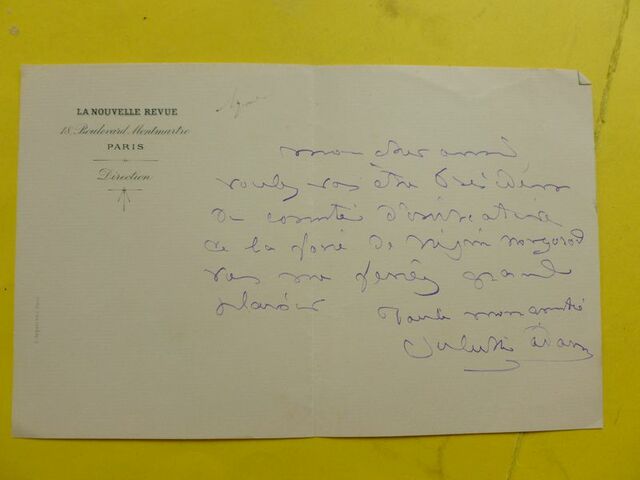 LA NOUVELLE REVUE
18, Boulevard Montmartre
PARIS
Direction
mon cher ami
voulez vous être Président
du comité d'initiative
de la foire de Nijni Novgorod
vous me ferez grand
plaisir
Toute mon amitié
Juliette Adam